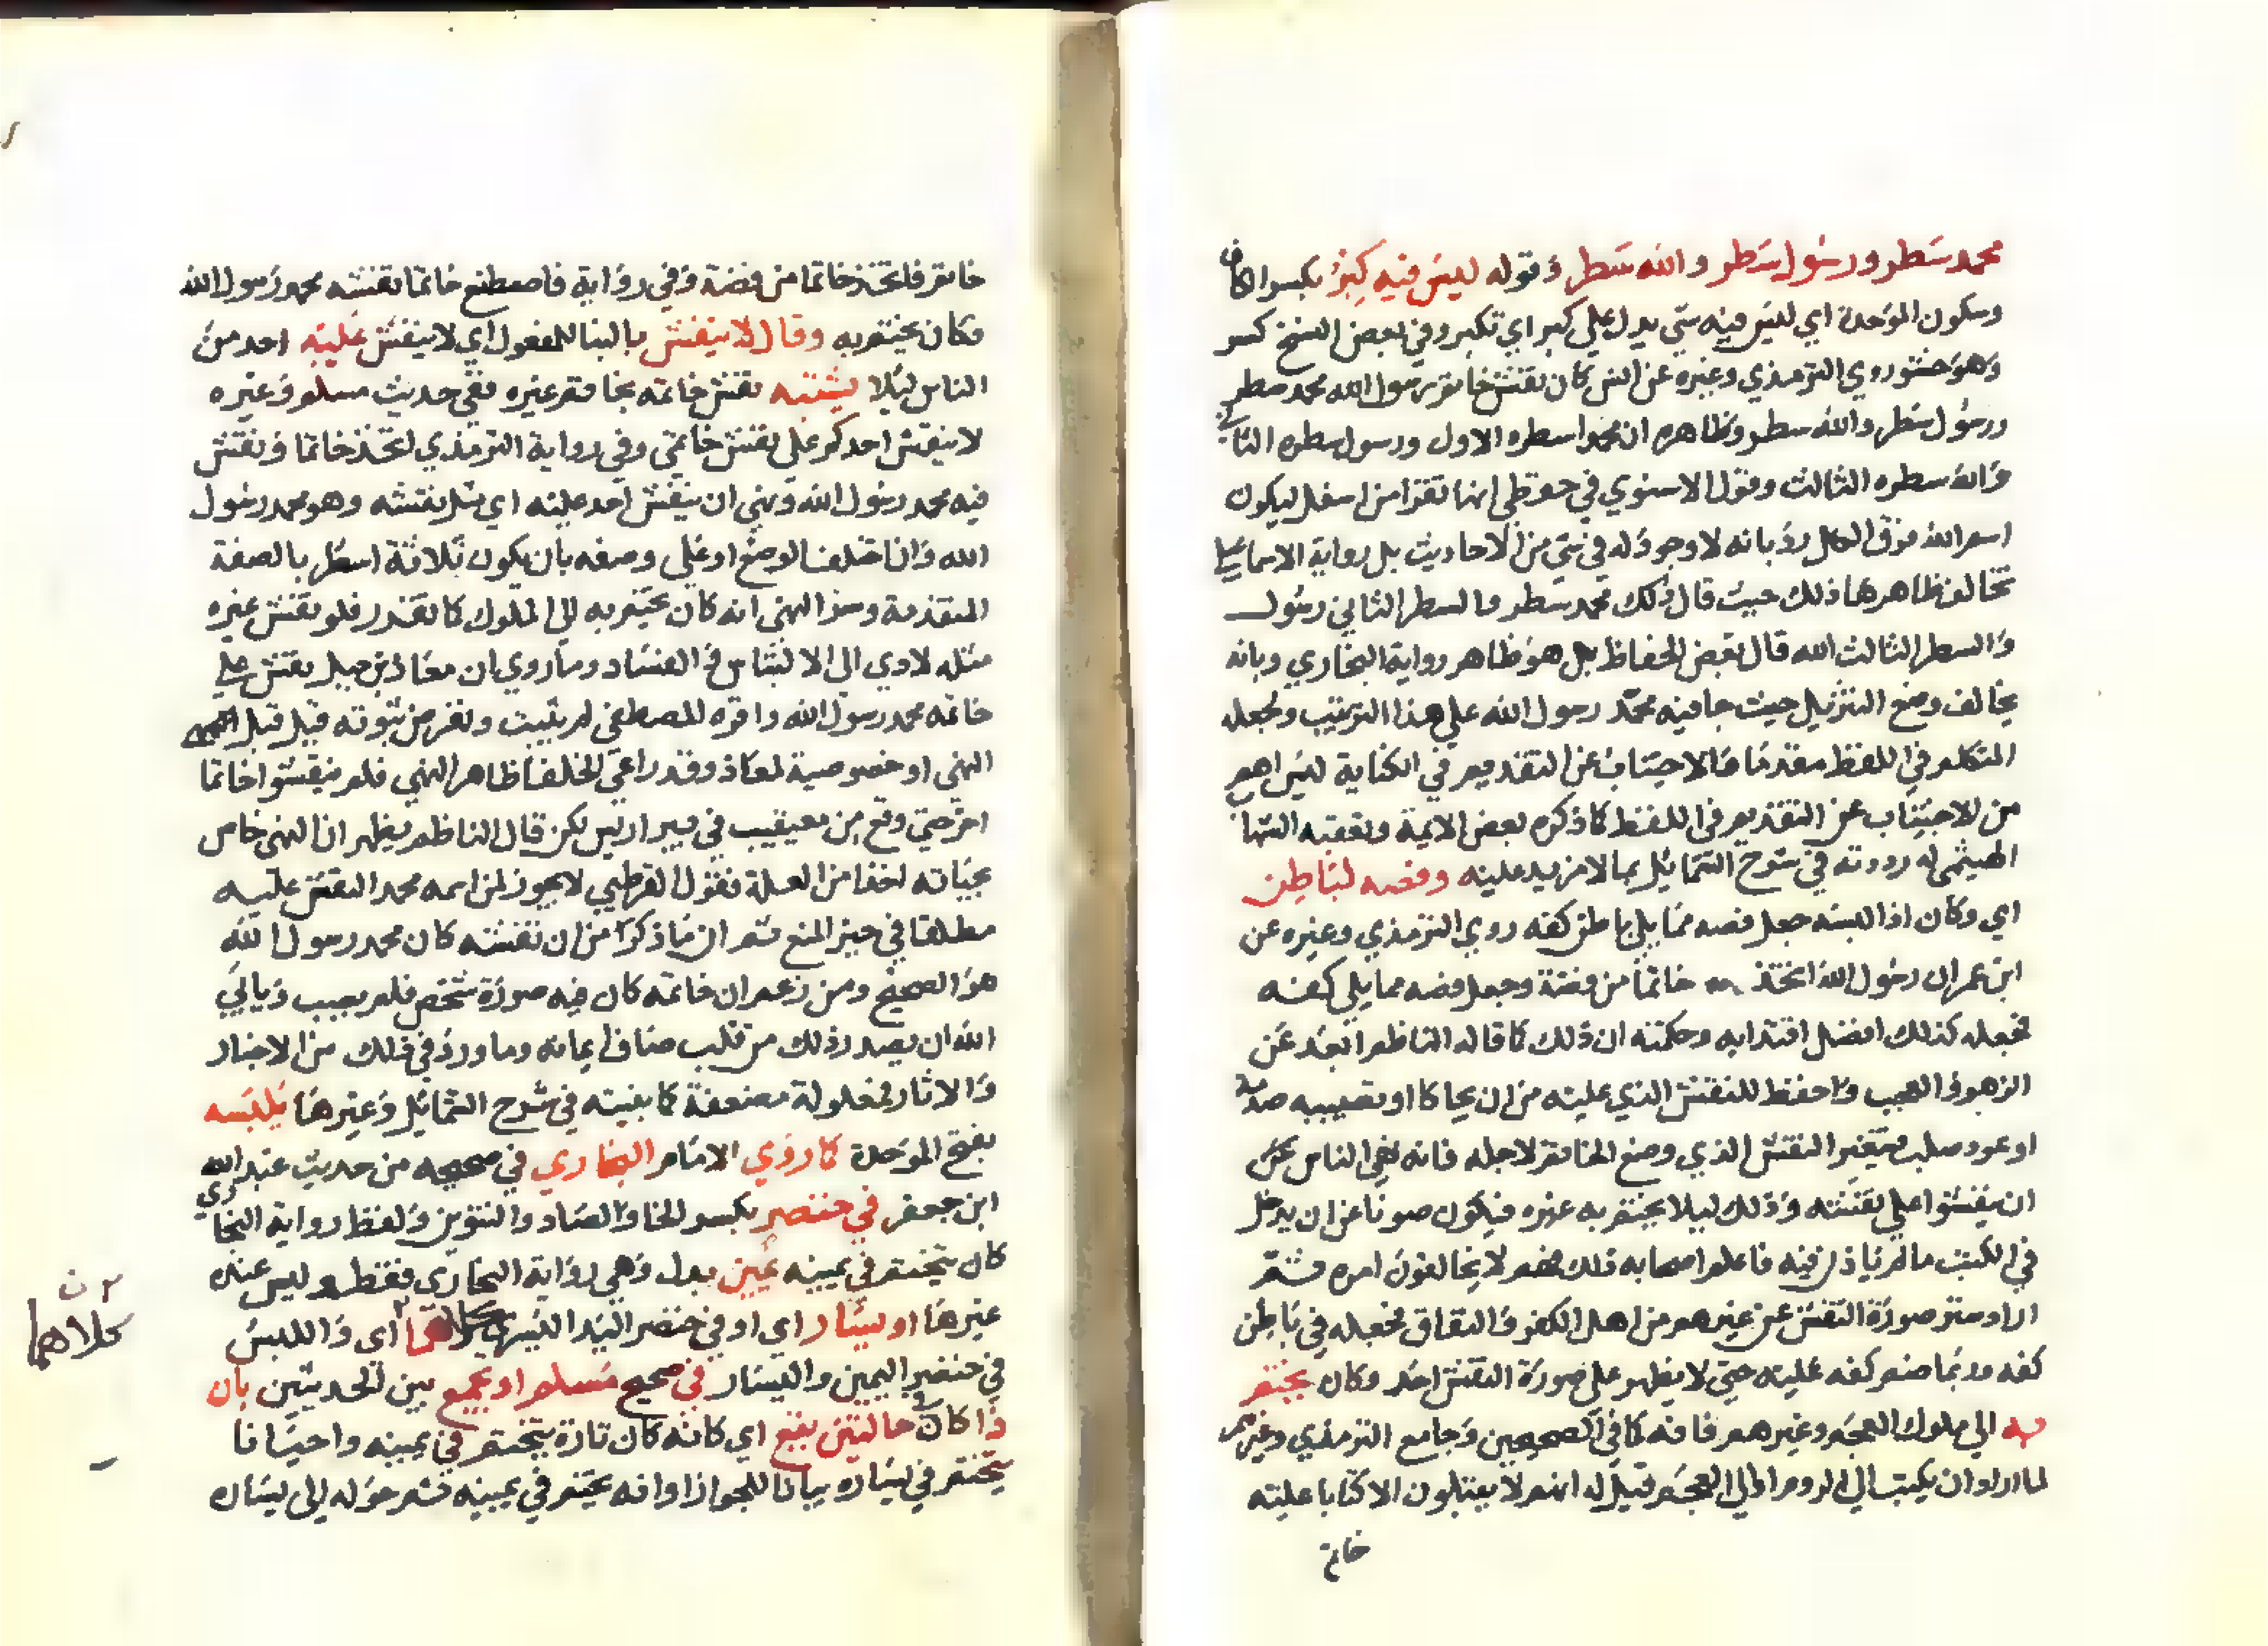 محمد سطر ورسول سطر والله سطر وقوله ليس فيه كبر بكسر الكاف
وسكون الموحدة اي ليس فيه شي يدل علي كبر اي تكبر وفي بعض النسخ كسر
وهو حشو روي الترمذي وغيره عن انس كان نقش خاتم رسول الله محمد سطر
ورسول سطر والله سطر وظاهره ان محمدا سطره الاول ورسول سطره الثاني
والله سطره الثالث وقول الاسنوي في حفظي انها تقرا من اسفل ليكون
اسم الله فوق الكل رد بانه لا وجود له في شي من الاحاديث بل رواية الاسماعيلي
تخالف ظاهرها ذلك حيث قال ذلك محمد سطر والسطر الثاني رسول
والسطر الثالث الله قال بعض الحفاظ بل هو ظاهر رواية البخاري وبانه
يخالف وضع التنزيل حيث جا فيه محمد رسول الله علي هذا الترتيب ولجعله
المتكلم في اللفظ مقدما فالاجتناب عن التقديم في الكتابة ليس اهم
من الاجتناب عن التقديم في اللفظ كما ذكره بعض الايمة وتعقبه الشهاب
الهيثمي له رددته في شرح الشمائل بما لا مزيد عليه وفصه لباطن
اي وكان اذا لبسه جعل فصه مما يلي باطن كفه روي الترمذي وغيره عن
ابن عمر ان رسول الله اتخذ خاتما من فضة وجعل فصه مما يلي كفه
فجعله كذلك افضل اقتدا به وحكمته ان ذلك كما قاله الناظم ابعد عن
الزهو والعجب واحفظ للنقش الذي عليه من ان يحاكا او تصيبه صدمة
او عود صلب فيتغير النقش الذي وضع الخاتم لاجله فانه نهي الناس عن
ان ينقشوا علي نقشه وذلك ليلا يختم به غيره فيكون صونا عن ان يدخل
في الكتب ما لم ياذن فيه فاعلم اصحابه ذلك فهم لا يخالفون امره ثم
اراد ستر صورة النقش عن غيرهم من اهل الكفر والنفاق فجعله في باطن
كفه وربما ضم كفه عليه حتي لا يظهر علي صورة النقش احد وكان يختم
به الي ملوك العجم وغيرهم فانه كما في الصحيحين وجامع الترمذي وغيرهم
لما اراد ان يكتب الي الروم او الي العجم قيل له انهم لا يقبلون الا كتابا عليه
خاتم
خاتم فاتخذ خاتما من فضة وفي رواية فاصطنع خاتما نقشه محمد رسول الله
فكان يختم به وقال لا ينقش بالبنا للمفعول اي لا ينقش عليه احد من
الناس ليلا يشتبه نقش خاتمه بخاتم غيره ففي حديث مسلم وغيره
لا ينقش احدكم علي نقش خاتمي وفي رواية الترمذي اتخذ خاتما ونقش
فيه محمد رسول الله ونهي ان ينقش احد عليه اي مثل نقشه وهو محمد رسول
الله وان اختلف الوضع او علي وصفه بان يكون ثلاثة اسطر بالصفة
المتقدمة وسر النهي انه كان يختم به الي الملوك كما تقدر فلو نقش غيره
مثله لادي الي الالتباس والفساد وما روي ان معاذ بن جبل نقش علي
خاتمه محمد رسول الله واقره المصطفي لم يثبت وبفرض ثبوته قيل قبل النهي
النهي او خصوصية لمعاذ وقد راعي الخلفا ظاهر النهي فلم ينقشوا خاتما
اخر حتي وقع من معيقيب في بير اريس لكن قال الناظم يظهر ان النهي خاص
بحياته اخذا من العلة فقول القرطبي لا يجوز لمن اسمه محمد النقش عليه
مطلقا في حيز المنع ثم ان ما ذكر من ان نقشه كان محمد رسول الله
هو الصحيح ومن زعم ان خاتمه كان فيه صورة شخص فلم يصب ويابي
الله ان يصدر ذلك من قلب صاف ايمانه وما ورد في ذلك من الاخبار
والاثار فمعلولة مضعفة كما بينته في شرح الشمائل وغيرها يلبسه
بفتح الموحدة كما روي الامام البخاري في صحيحه من حديث عبد الله
ابن جعفر في خنصر بكسر الخا والصاد والتنوين ولفظ رواية البخاري
كان يتختم في يمينه يمين بدل وهي رواية البخاري فقط وليس عنده
غيرها او يسار اي او في خنصر اليد اليسري كلاهما اي واللبس
في خنصر اليمين واليسار في صحيح مسلم او يجمع بين الحديثين بان
ذا كان في حالتين يقع اي كانه كان تارة يتختم في يمينه واحيانا
يتختم في يساره بيانا للجواز او انه تختم في يمينه ثم حوله الي يساره
كلاهما